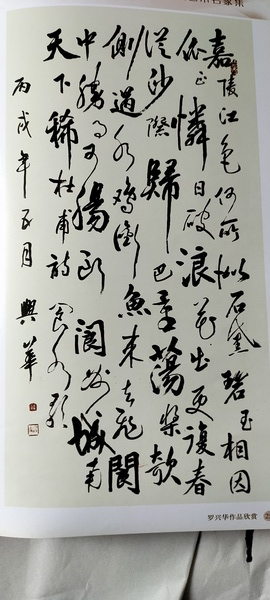 嘉陵江色何所似石黛碧玉相因
依正憐日破浪花出更復春
從沙際歸巴童蕩槳欹
側過水鷄銜魚來去飛閬
中勝事可腸斷閬州城南
天下稀杜甫詩閬水歌
丙戌年五月興華
罗兴华作品欣赏